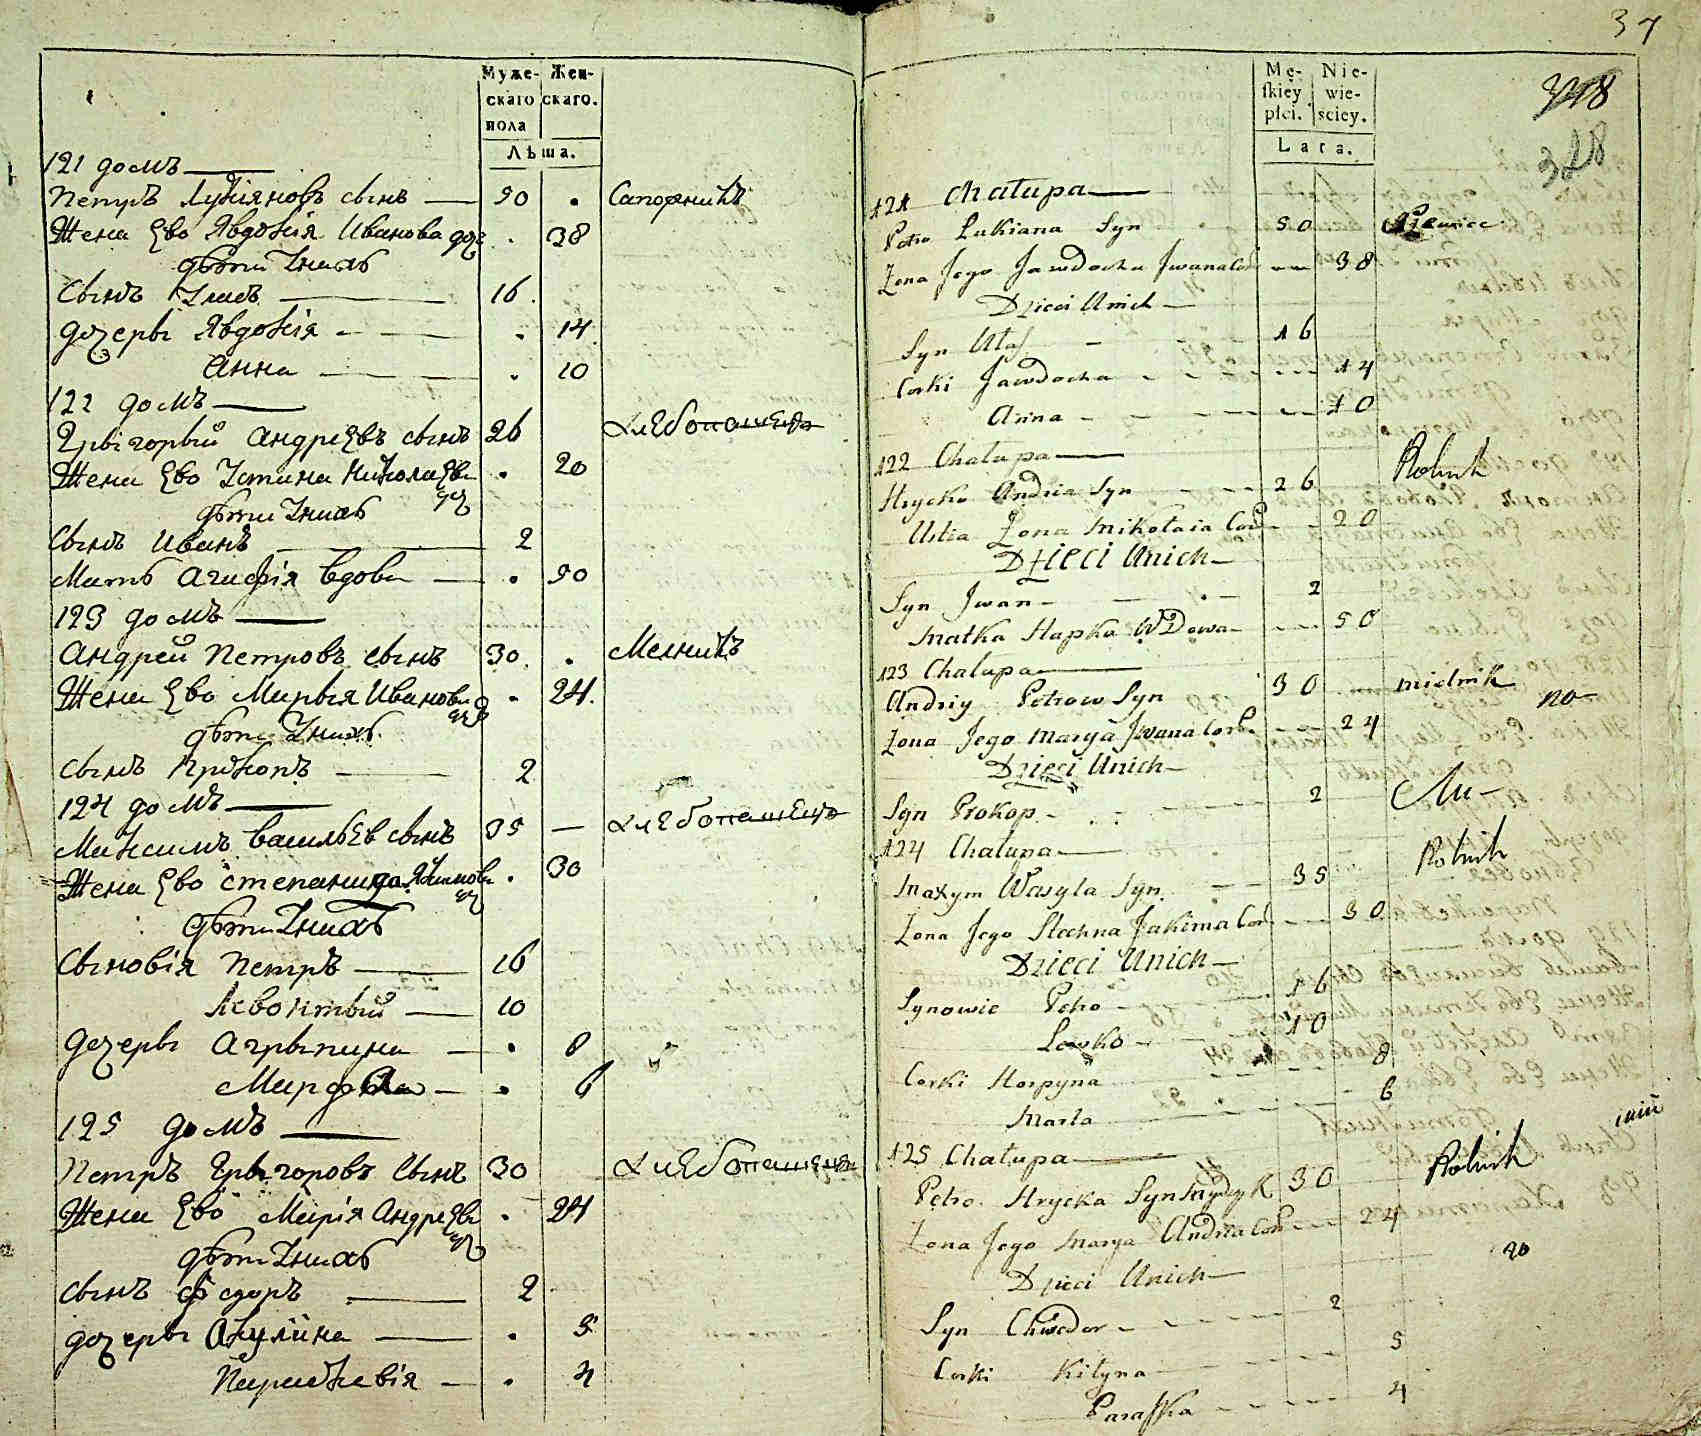 Муже-
скаго
пола
Жен-
скаго.
Лѣта.
121 домъ
Петръ Лукіяновъ сынъ 50 .
Сапожникъ
Жена Ево Явдокія Иванова доч . 38
дѣти Ихъ
Сынъ Уласъ 16.
дочеры Явдокія . 14
Анна . 10
122 домъ
Грыгорый Андрієвъ сынъ 26
хлебопашецъ
Жена Ево Устина Николаєва доч . 20
дѣти Ихъ
Сынъ Иванъ 2
Мать Агафія вдова . 50
123 домъ
Андрей Петровъ сынъ 30. .
Мелникъ
Жена Ево Марья Иванова доч . 24.
дѣти Ихъ
Сынъ Прокопъ 2
124 домъ
Максимъ Васильєв сынъ 35 —
хлебопашецъ
Жена Ево Степанида Якимова доч . 30
дѣти Ихъ
Сыновія Петръ 16
Левонтый 10
дочеры Агрыпина . 8
Марфа . 6
125 домъ
Петръ Грыгоровъ Сынъ 30
хлебопашецъ
Жена Ево Марія Андрієва доч . 24
дѣти Ихъ
Сынъ Федоръ 2
дочеры Акулина . 5
Параскевія . 4
37
318
328
Mę-
skiey
płci.
Nie-
wie-
sciey.
Lata.
121 Chałupa
Petro Łukiana Syn 50
Szewiec
Zona Jego Jawdocha Jwana Cor 38
Dzieci Unich
Syn Ułas 16
Corki Jawdocha 14
Anna 10
122 Chałupa
Rolnik
Hrycko Andria Syn 26
Ustia Zona Mikołaia Cor 20
Dzieci Unich
Syn Jwan 2
Matka Hapka WDowa 50
123 Chałupa
Andriy Petrow Syn 30
mielnik
no
Zona Jego Marya Jwana Cork 24
Dzieci Unich
Syn Prokop 2
124 Chałupa
Rolnik
Maxym Wasyla Syn 35
Zona Jego Stechna Jakima Cor 30
Dzieci Unich
Synowie Petro 16
Lewko 10
Corki Horpyna 8
Marta 6
125 Chałupa
Rolnik
Petro Hrycka Syn 30
Zona Jego Marya Andria Cor 24
Dzieci Unich
Syn Chwedor 2
Corki Kilyna 5
Paraska 4